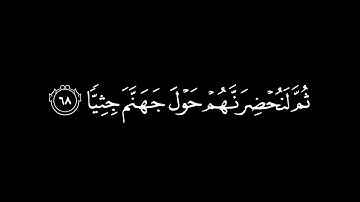 ثُمَّ لَنُحْضِرَنَّهُمْ حَوْلَ جَهَنَّمَ جِثِيًّا ٦٨